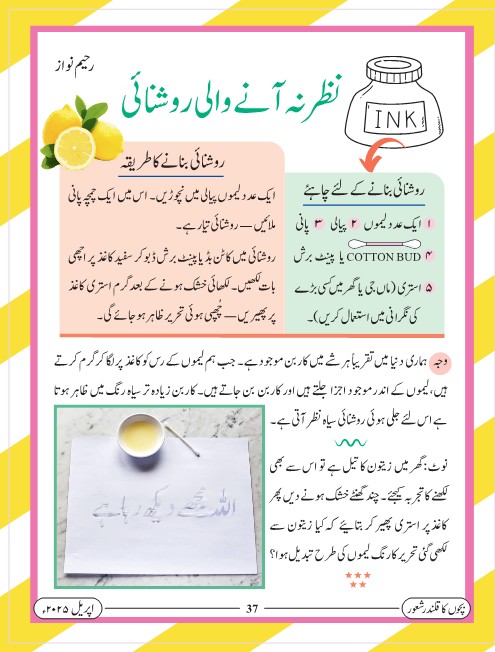 رحیم نواز
نظر نہ آنے والی روشنائی
INK
روشنائی بنانے کے لئے چاہئے
۱ ایک عدد لیموں ۲ پیالی ۳ پانی
۴ COTTON BUD یا پینٹ برش
۵ استری (ماں جی یا گھر میں کسی بڑے
کی نگرانی میں استعمال کریں)۔
روشنائی بنانے کا طریقہ
ایک عدد لیموں پیالی میں نچوڑیں۔ اس میں ایک چمچہ پانی
ملائیں — روشنائی تیار ہے۔
روشنائی میں کاٹن بڈ یا پینٹ برش ڈبو کر سفید کاغذ پر اچھی
بات لکھیں۔ لکھائی خشک ہونے کے بعد گرم استری کاغذ
پر پھیریں — چُھپی ہوئی تحریر ظاہر ہو جائے گی۔
وجہ ہماری دنیا میں تقریباً ہر شے میں کاربن موجود ہے۔ جب ہم لیموں کے رس کو کاغذ پر لگا کر گرم کرتے
ہیں، لیموں کے اندر موجود اجزا جلتے ہیں اور کاربن بن جاتے ہیں۔ کاربن زیادہ تر سیاہ رنگ میں ظاہر ہوتا
ہے اس لئے جلی ہوئی روشنائی سیاہ نظر آتی ہے۔
نوٹ: گھر میں زیتون کا تیل ہے تو اس سے بھی
لکھنے کا تجربہ کیجئے۔ چند گھنٹے خشک ہونے دیں پھر
کاغذ پر استری پھیر کر بتائیے کہ کیا زیتون سے
لکھی گئی تحریر کا رنگ لیموں کی طرح تبدیل ہوا؟
اللہ مجھے دیکھ رہا ہے
بچوں کا قلندر شعور
37
اپریل ۲۰۲۵ء